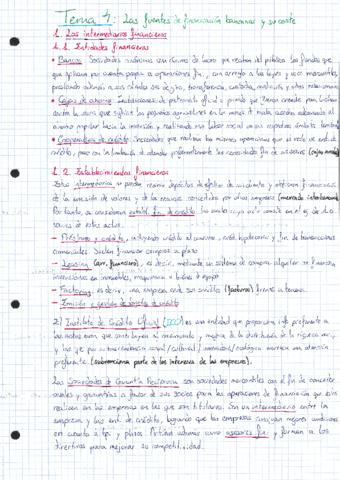 Tema 4: Las fuentes de financiación bancarias y su coste
1. Los intermediarios financieros
1.1. Entidades financieras
• Bancos: Sociedades anónimas con ánimo de lucro que reciben del público los fondos que
que aplican por cuenta propia a operaciones fin., con arreglo a las leyes y usos mercantiles,
prestando además a sus clientes serv. de giro, transferencia, custodia, mediación y otros relacionados
• Cajas de ahorro: Instituciones de patronato oficial o privado que fueron creadas para luchar
contra la usura que sufrían los pequeños agricultores
ahorro popular hacia la inversión y realizando una labor social en sus respectivos ámbitos territ.
• Cooperativas de crédito: Sociedades que realizan las mismas operaciones que el resto de ent. de
crédito, pero con la limitación de atender preferentemente las necesidades fin. de sus socios (cajas rurales)
1.2. Establecimientos financieros
Estos intermediarios no pueden recibir depósitos de efectivo de sus clientes y obtienen financiación
de la emisión de valores y de los recursos concedidos por otras empresas (mercado interbancario)
Por tanto, se denominan establ. fin. de crédito.
– Préstamo y crédito, incluyendo crédito al consumo, créd. hipotecario y fin. de transacciones
comerciales. Suelen financiar compras a plazo
– Leasing (arr. financiero), es decir, mediante un sistema de compra-alquiler se financian
inversiones en inmuebles, maquinaria o bienes de equipo
– Factoring, es decir, una empresa cede sus créditos (facturas) frente a terceros
– Emisión y gestión de tarjetas de crédito
2) Instituto de Crédito Oficial (ICO) es una entidad que proporciona
las actividades que contribuyen al crecimiento y mejora de la distribución de la riqueza nac.,
y las que por su trascendencia social/cultural/innovadora/ecológica merezcan una atención
preferente. (subvenciona parte de los intereses de las empresas).
Las Sociedades de Garantía Recíproca son sociedades mercantiles con el fin de conceder
avales y garantías a favor de sus socios para las operaciones de financiación que estos
realicen en las empresas en las que son titulares. Son un intermediario entre la
empresa y las ent. de crédito, logrando que las empresas consigan mejores condiciones
en cuanto a tipos y plazos. Actúan además como asesores fin. y forman a los
directivos para mejorar su competitividad.